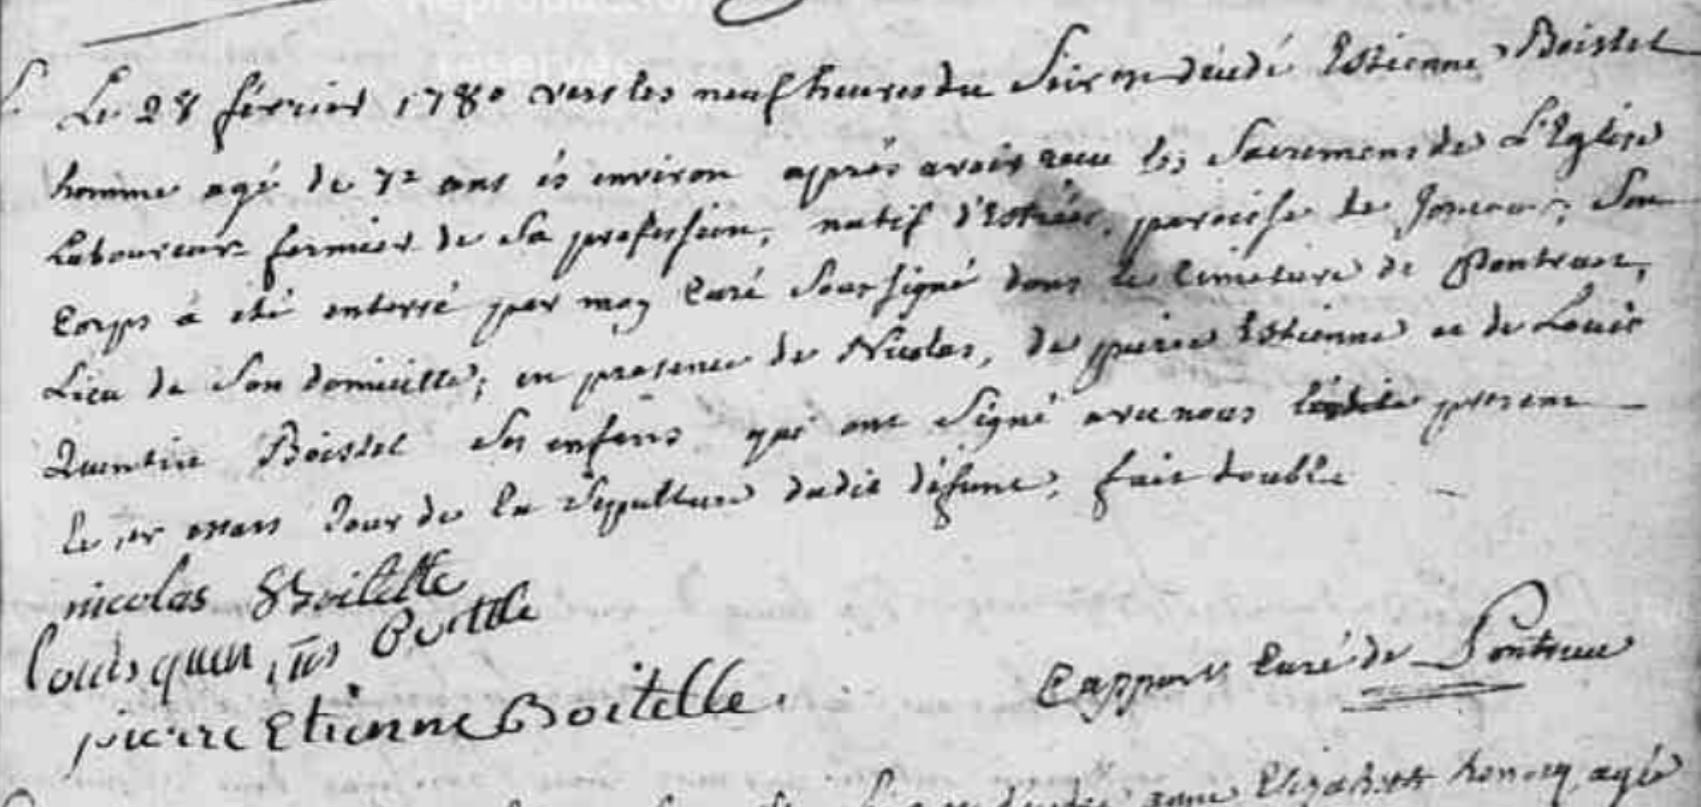 Reproduction
reservés
Le 28 février 1780 vers les neuf heures du Soir est décédé Estienne Boistel
homme agé de 72 ans ès environ après avoir reçu les Sacremens de L'Eglise
Laboureur fermier de Sa profession, natif d'Estrées, paroisse de Joncour, Son
Corps a été enterré par moy Curé Soussigné dans le Cimetiere de Pontruet,
Lieu de Son domicille, en presence de Nicolas, de pierre Estienne et de Louis
Quentin Boistel Ses enfans qui ont Signé avec nous present
Le 1er mars Jour de la Sepulture dudit défunt, fait double
nicolas Boitelle
Louis quentin Boitelle
pierre Etienne Boitelle.
Capport Curé de Pontruet
Elizabeth agé